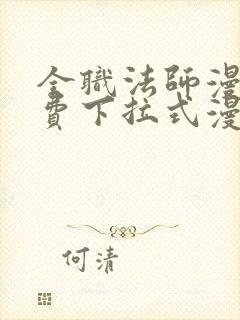 全職法師漫
費下拉式漫
何清